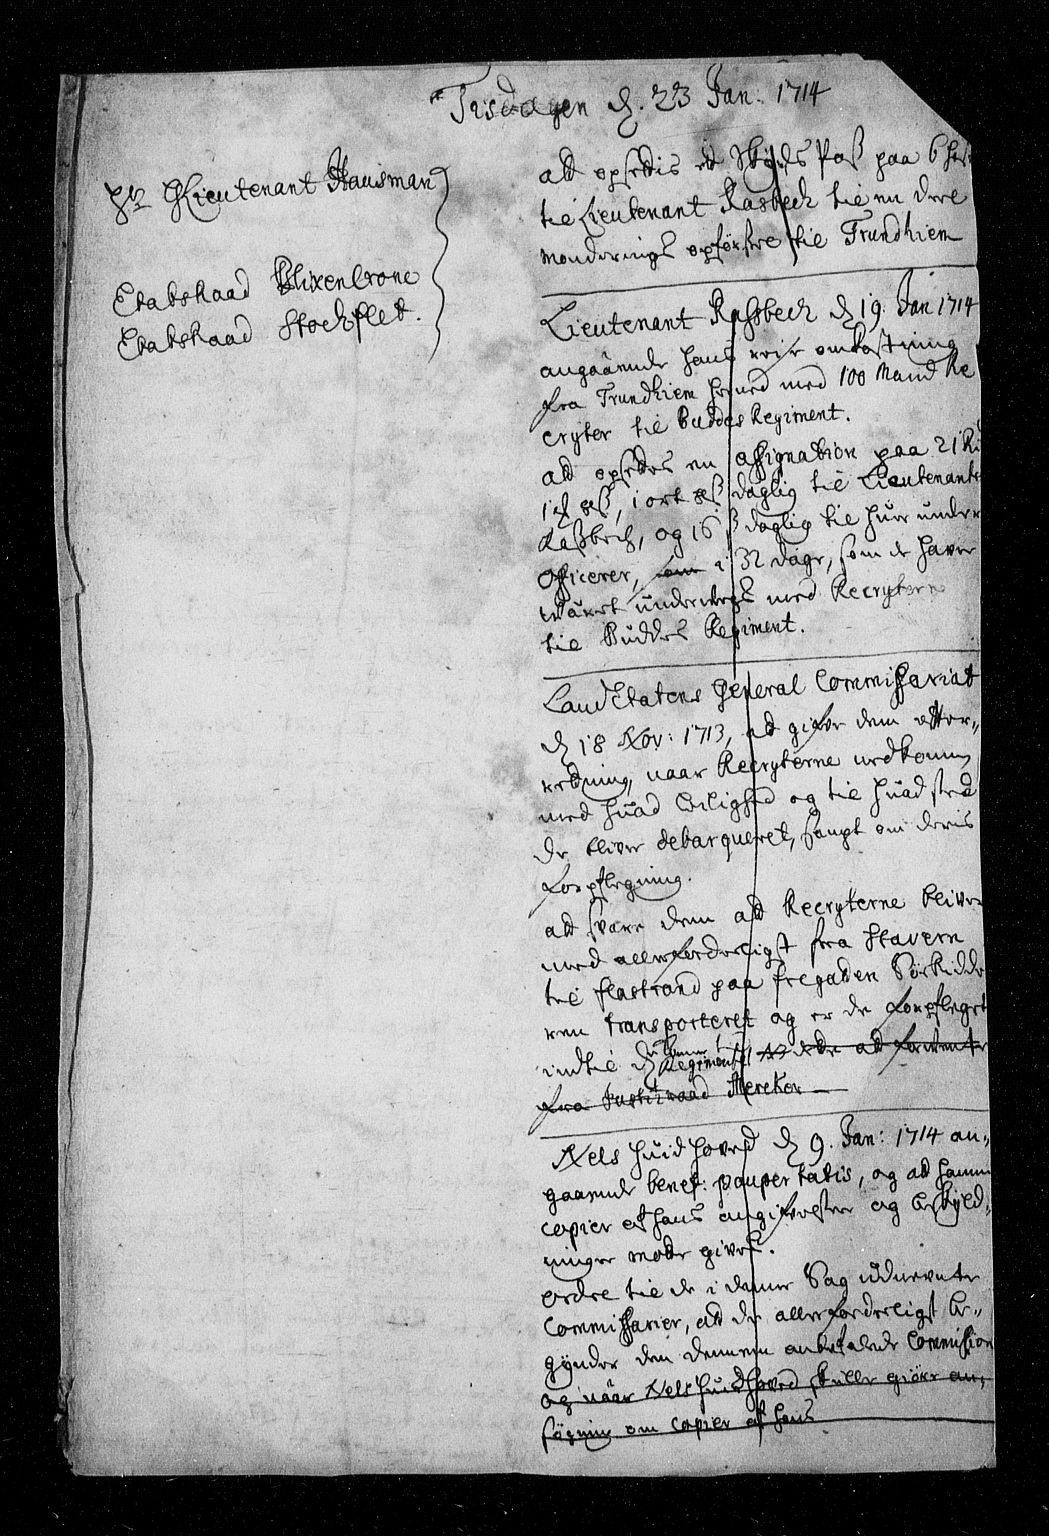 Tisdagen d. 23 Jan: 1714
Hr GLieutenant Hausman
Etatsraad Blixencrone
Etatsraad Stockflet.
att opsettis et Skyds Pass paa 6 heste
til Lieutenant Rasbech til en deel
monderings opförsel til Trundhiem
Lieutenant Rassbech d 19. Jan 1714
angaaende hans reise omkostning
fra Trundhiem hermed med 100 Mand Re
cryter til Buddes Regiment.
att opsettes en assignation paa 21 R
1 ort 8 ß, 1 ort 8 ß daglig til Lieutenante
Rassbech, og 16 ß daglig til hver under
officerer, som i 32 dage, som de haver
været underveis med Recryterne
til Buddes Regiment.
LandEtatens General Commissariat
d 18 Nov: 1713, at give dem efter-
retning, naar Recryterne nedkomm
med huad Leilighed og til huad sted
de bliver debarqueret, sampt om deris
forpflegning.
att svare dem att Recryterne bliver
med allerforderligst fra Stavern
til flastrand paa fregaden Sörridde
ren transporteret og er de forpfleget
indtil d
Regimentet att forvente
fra Justitzraad Mercker
Nels Huidhoved d 9. Jan: 1714 an-
gaaende benef: paupertatis, og att hannem
copier af hans angifvelser og beskyld-
ninger motte gives.
ordre til de i denne Sag udnevnte
Commissarier, att de allerforderligst be-
gynder den dennem anbefalede Commission
og naar Nels Huidhoved skulle giöre an-
sögning om copier af hans